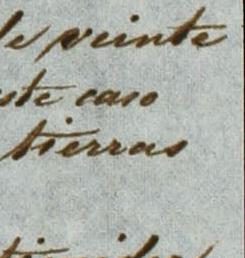 de veinte
este caso
tierras